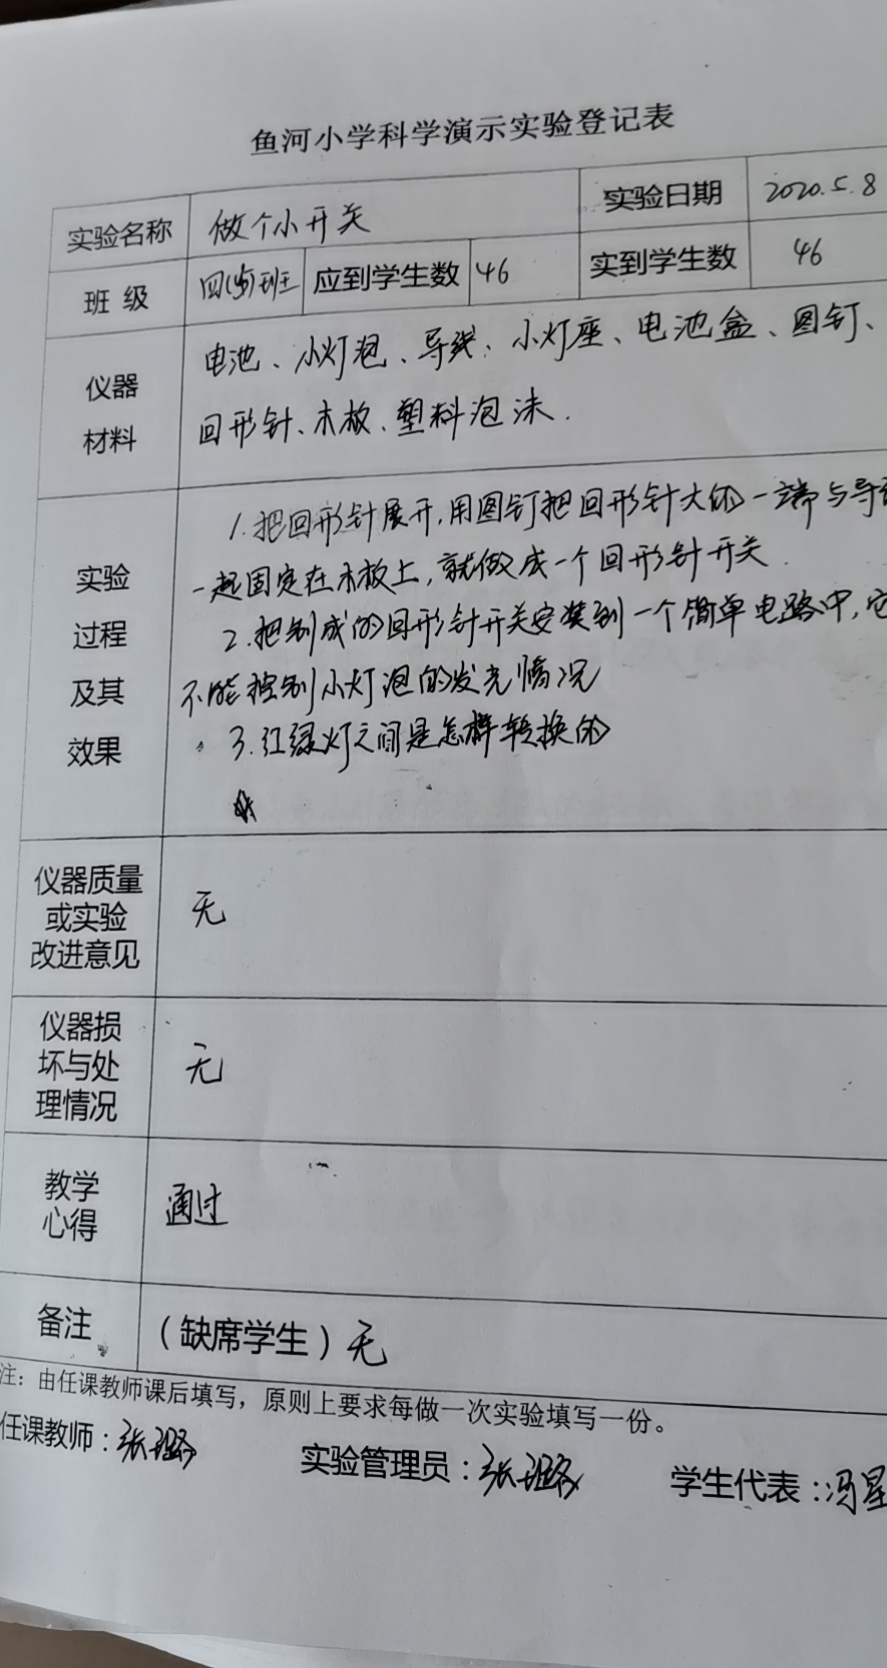 鱼河小学科学演示实验登记表
实验名称 做个小开关 实验日期 2020.5.8
班 级 四(5)班 应到学生数 46 实到学生数 46
仪器 电池、小灯泡、导线、小灯座、电池盒、图钉、
材料 回形针、木板、塑料泡沫.
1.把回形针展开,用图钉把回形针大的一端与导
实验 一起固定在木板上,就做成一个回形针开关.
过程 2.把制成的回形针开关安装到一个简单电路中,它
及其 不能控制小灯泡的发光情况
效果 3.红绿灯之间是怎样转换的
仪器质量
或实验 无
改进意见
仪器损
坏与处 无
理情况
教学 通过
心得
备注 (缺席学生)无
注:由任课教师课后填写,原则上要求每做一次实验填写一份。
任课教师:张 实验管理员:张 学生代表:冯星